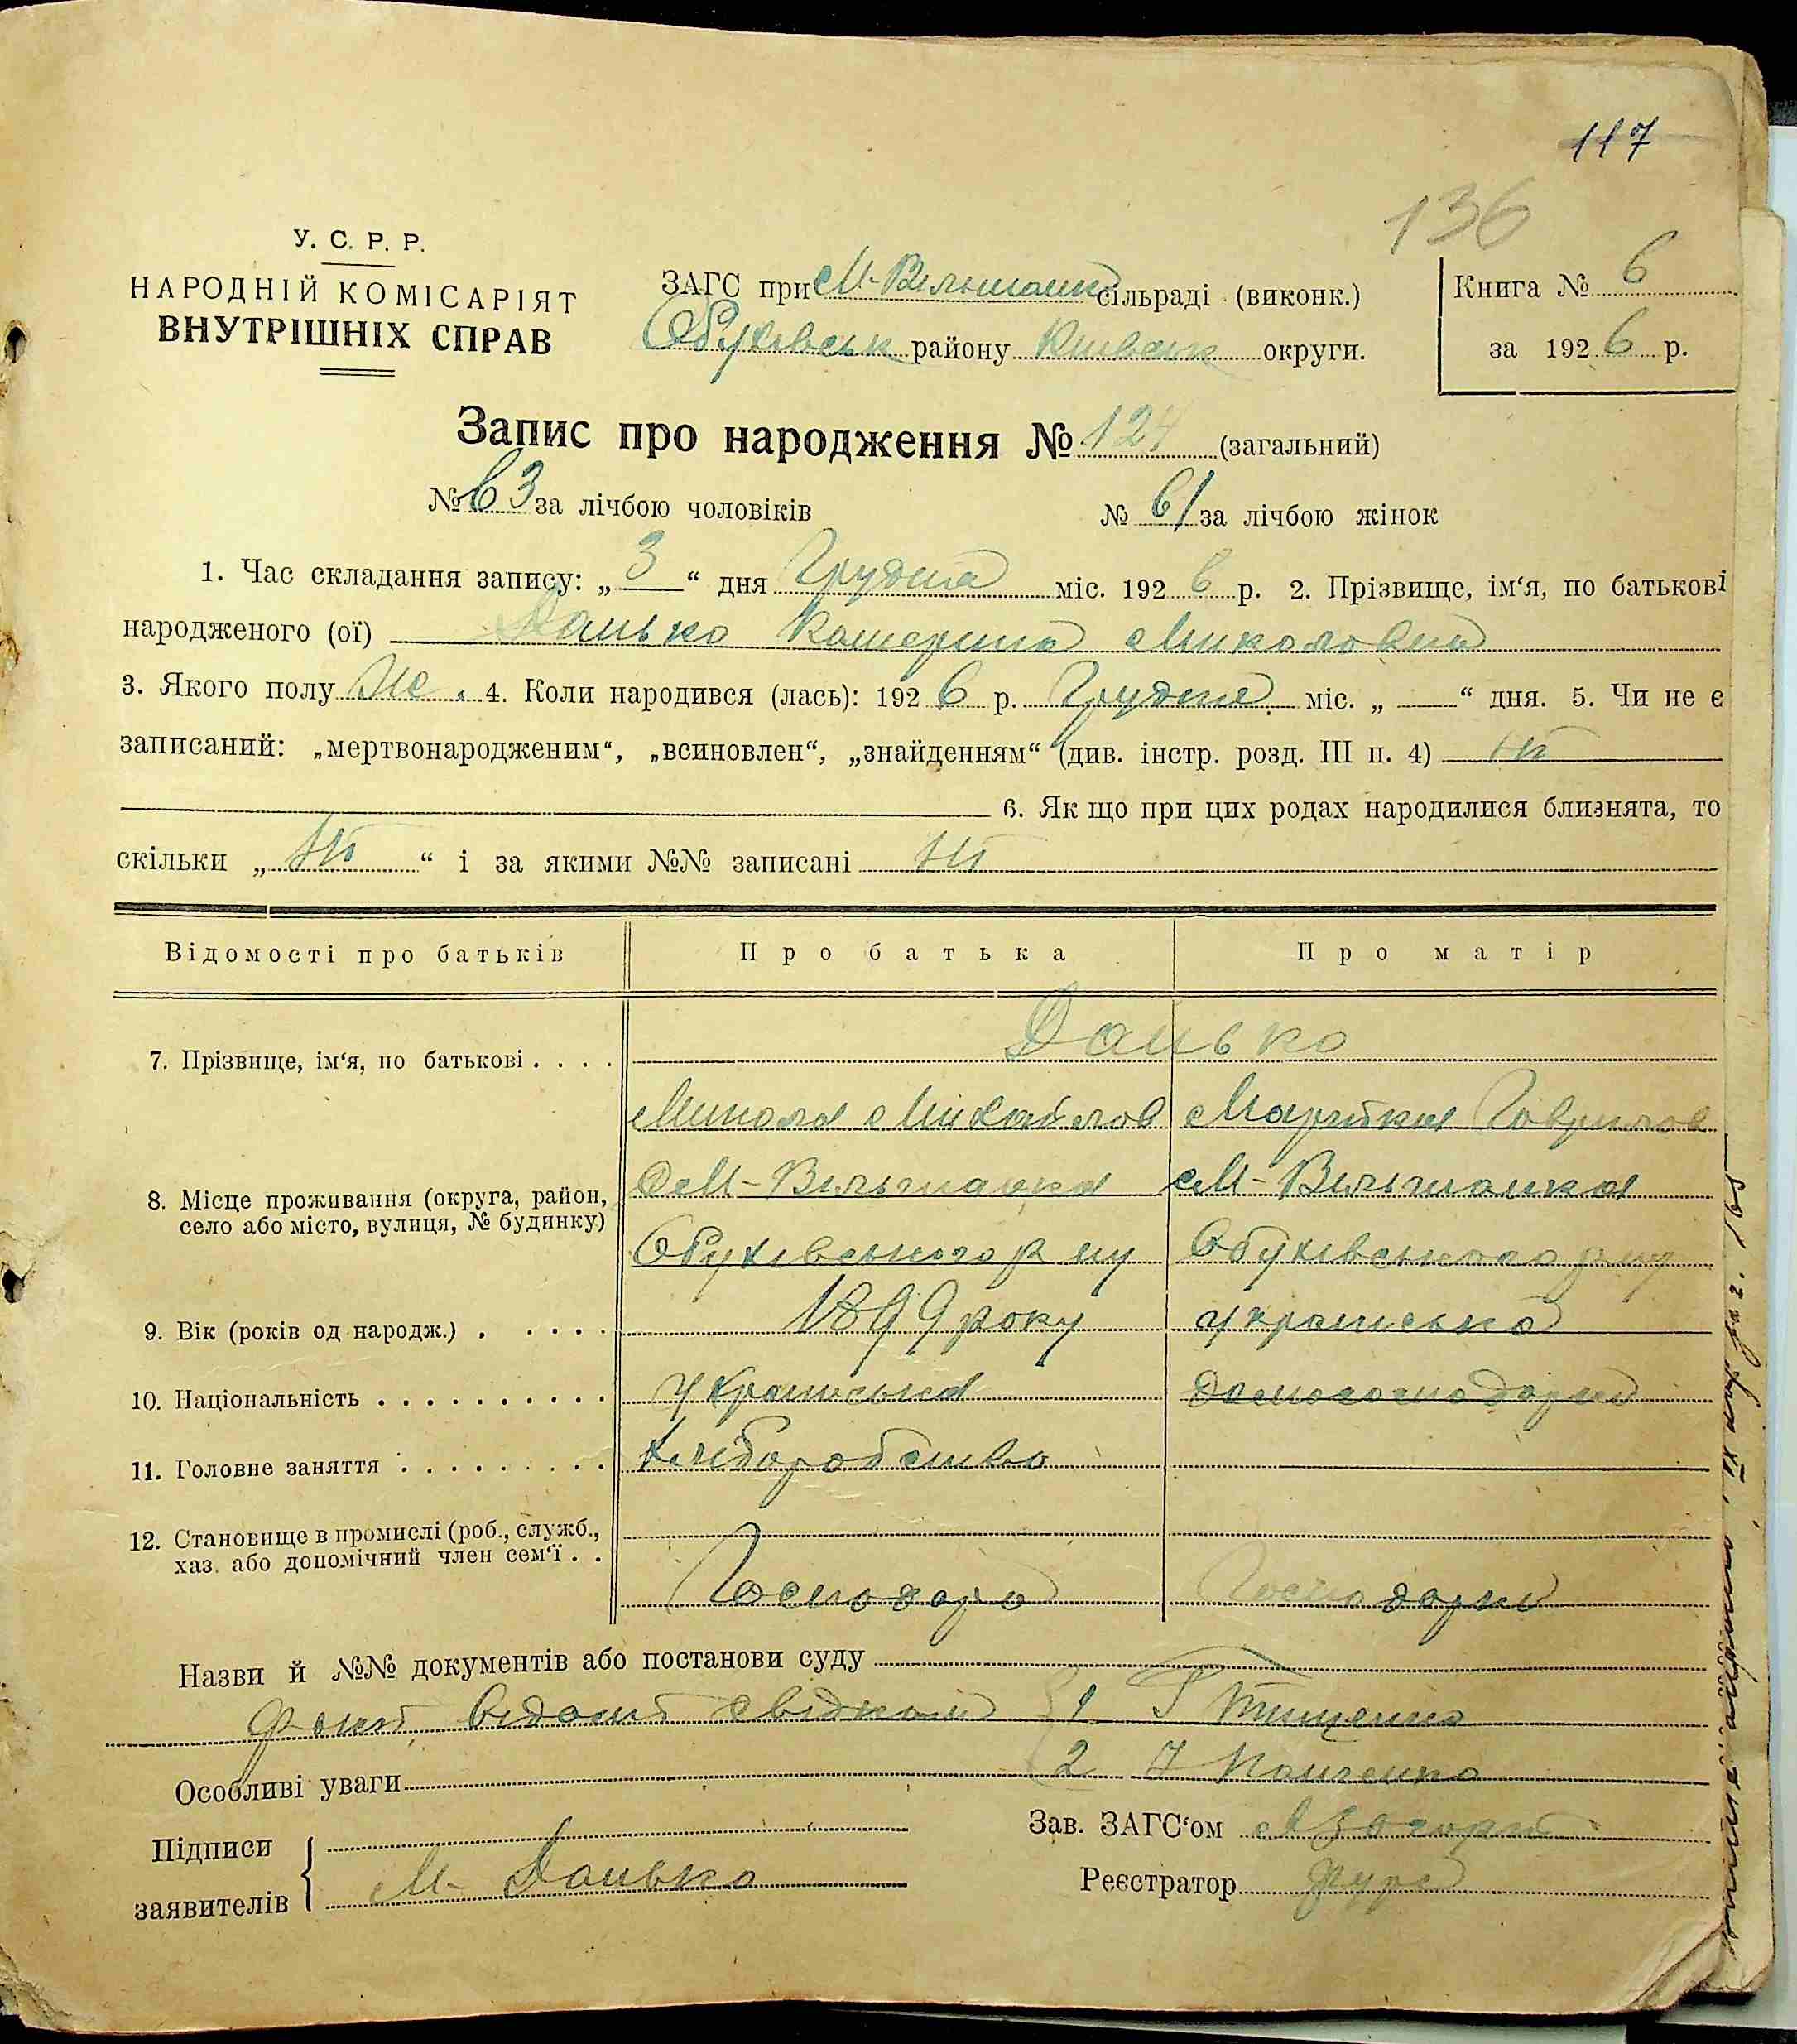 117
136
У. С. Р. Р.
НАРОДНІЙ КОМІСАРІЯТ
ВНУТРІШНІХ СПРАВ
ЗАГС при М-Вільшанк сільраді (виконк.)
Обухівськ району Київськ округи.
Книга № 6
за 1926 р.
Запис про народження № 124 (загальний)
№ 63 за лічбою чоловіків № 61 за лічбою жінок
1. Час складання запису: „ 3 “ дня Грудня міс. 1926 р. 2. Прізвище, ім‘я, по батькові
народженого (ої) Данько Катерина Миколовна
3. Якого полу Же. 4. Коли народився (лась): 1926 р. Грудня міс. „ — “ дня. 5. Чи не є
записаний: „мертвонародженим“, „всиновлен“, „знайденням“ (див. інстр. розд. III п. 4) ні
6. Як що при цих родах народилися близнята, то
скільки „ ні “ і за якими №№ записані ні
Відомості про батьків Про батька Про матір
7. Прізвище, ім‘я, по батькові . . . . Данько
Микола Михайлов Марійка Гаврилов
8. Місце проживання (округа, район,
село або місто, вулиця, № будинку)
М-Вільшанка М-Вільшанка
Обухівського р ну Обухівського р ну
9. Вік (років од народж.) . . . . . 1899 року українська
10. Національність . . . . . . . . . . українська домогосподарка
11. Головне заняття . . . . . . . . . хліборобство
12. Становище в промислі (роб., служб.,
хаз. або допомічний член сем‘ї . .
Господарь Господарка
Назви й №№ документів або постанови суду
Факт відомй свідкам 1 Г Тищенко
2 Панченко
Особливі уваги
Підписи
заявителів
М- Данько
Зав. ЗАГС‘ом
Реєстратор